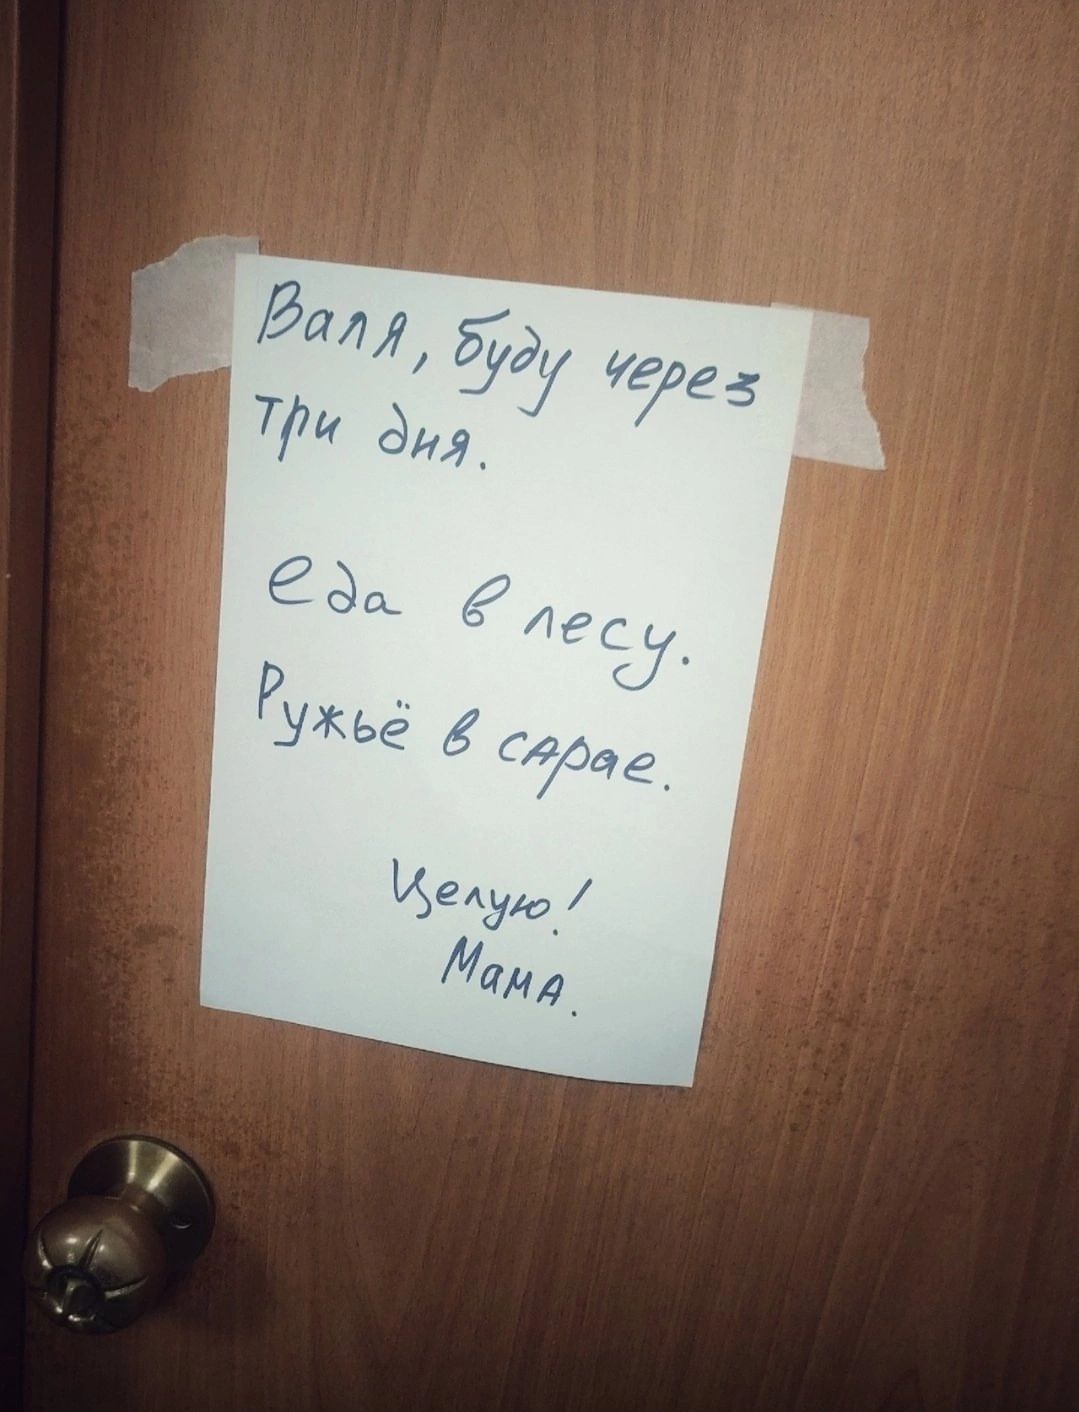 Валя, буду через
три дня.
еда в лесу.
Ружьё в сарае.
Целую!
Мама.